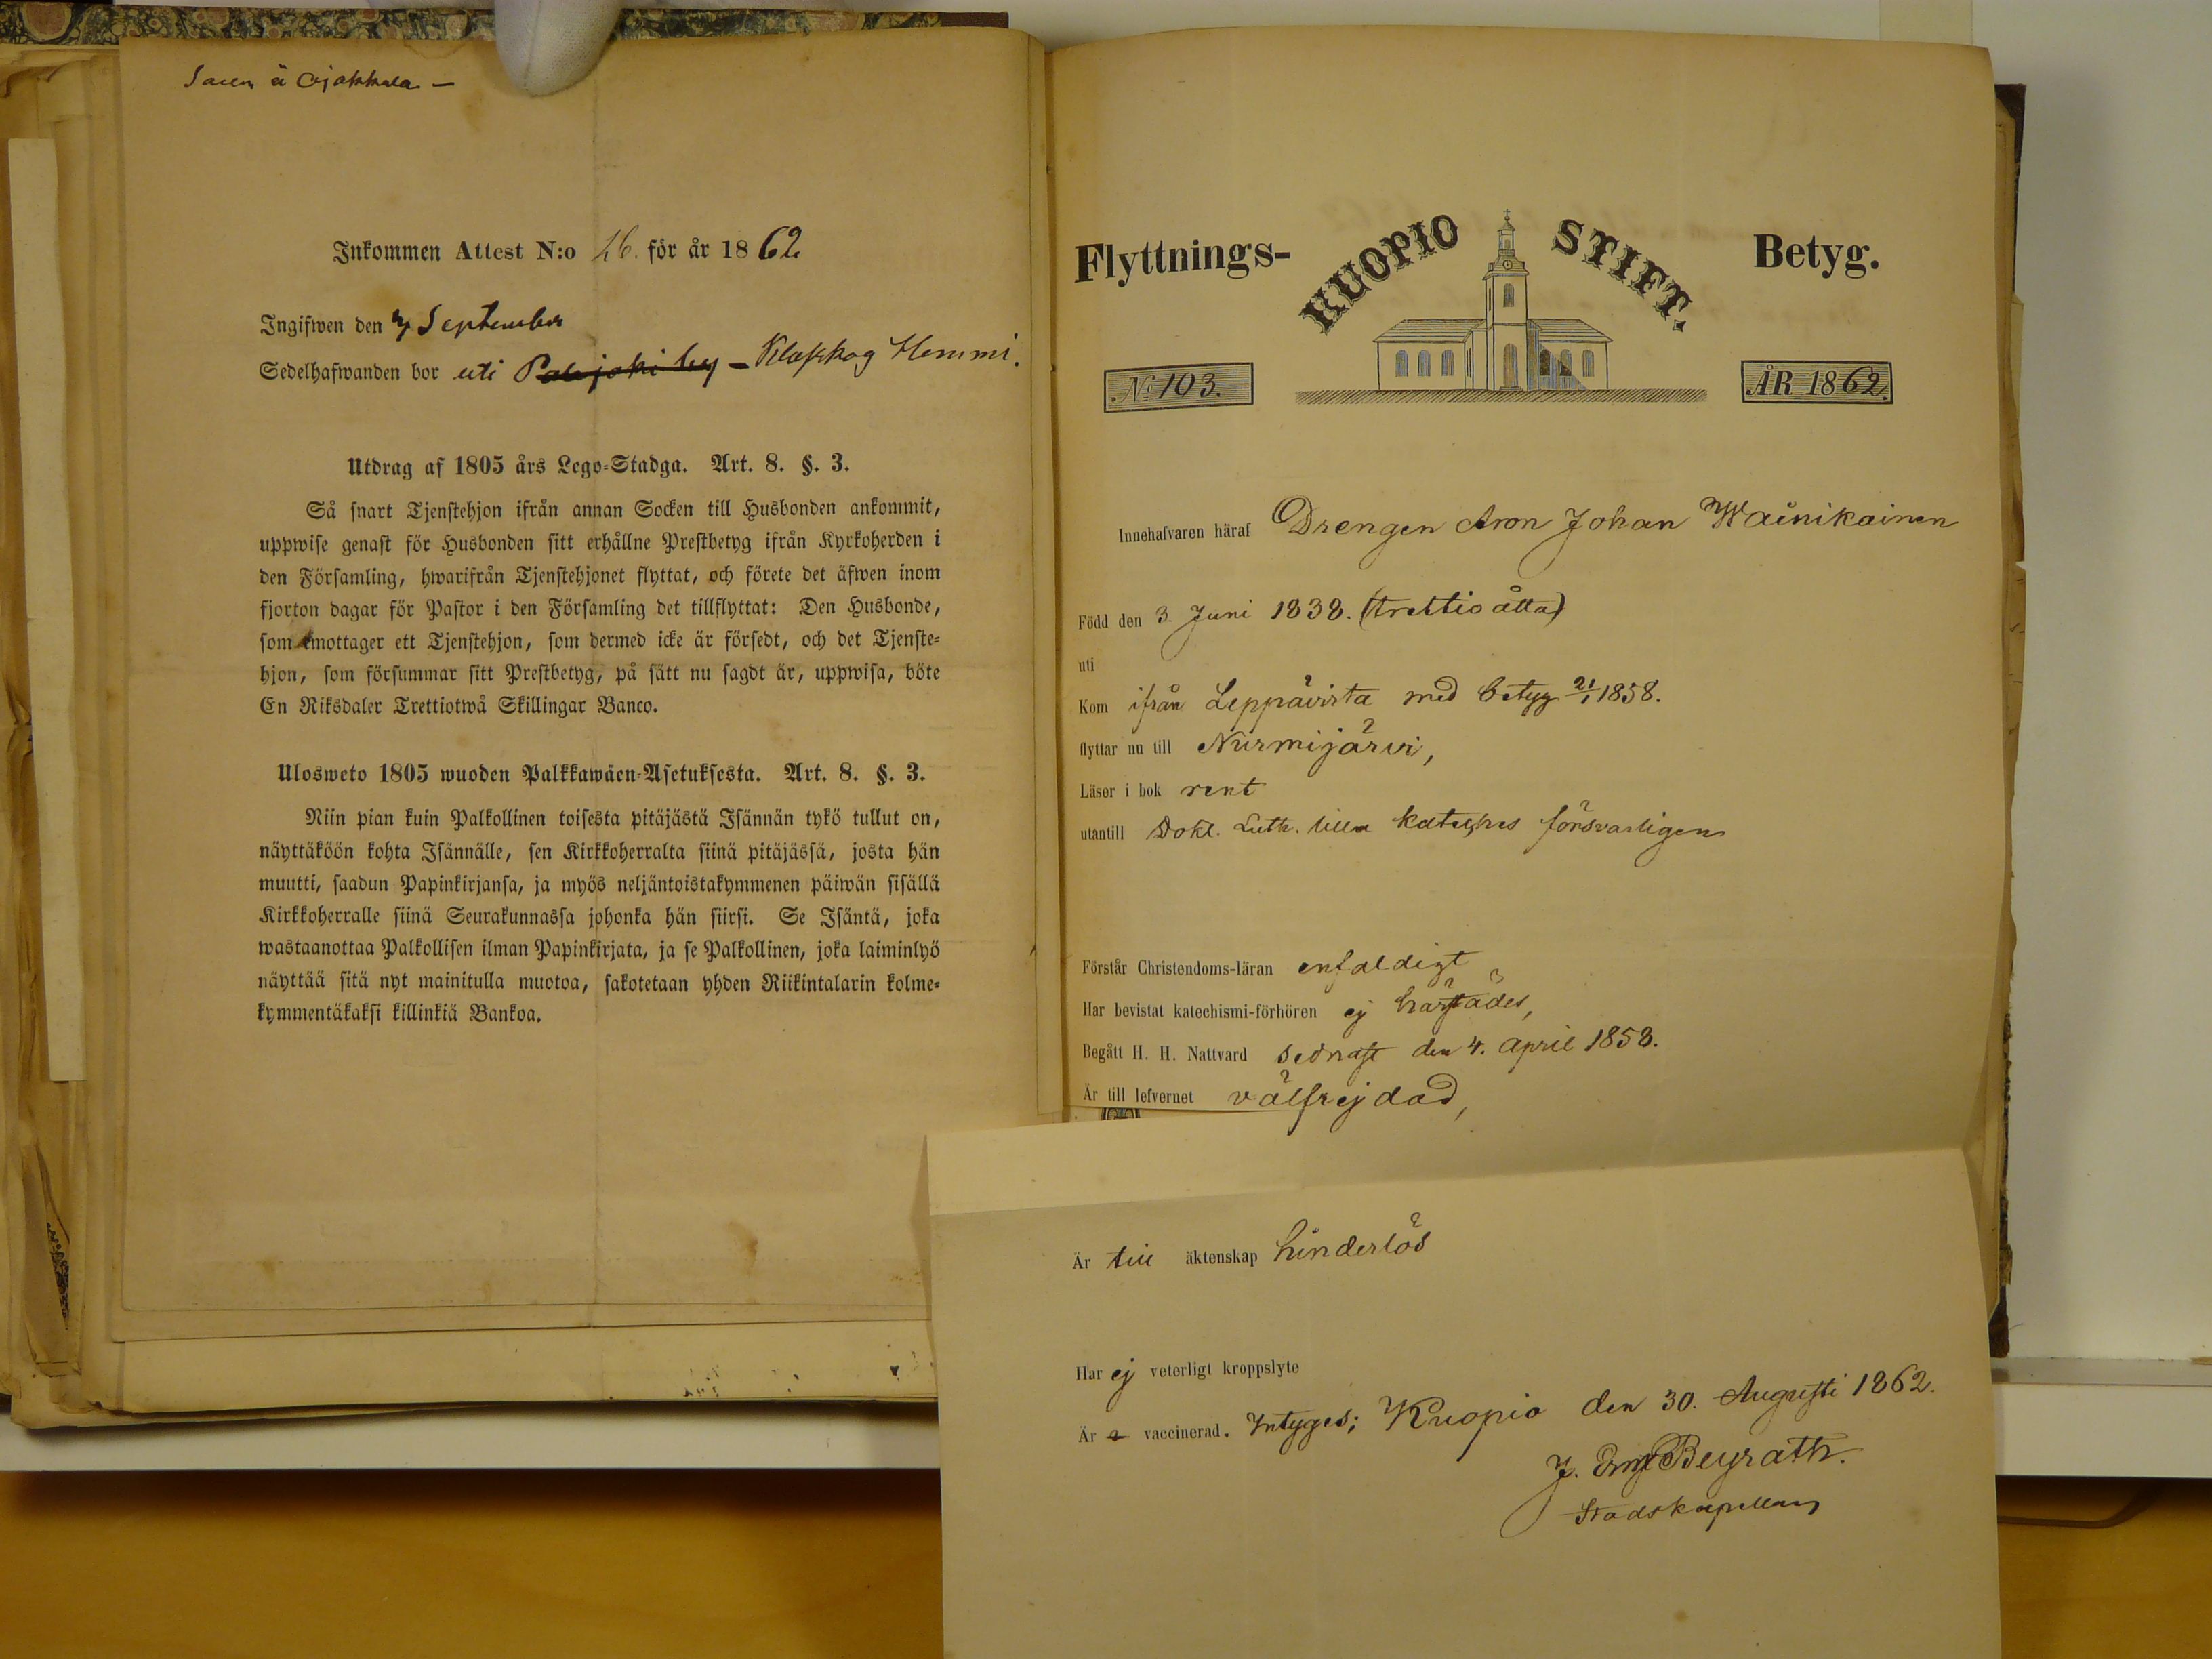 Inkommen Attest N:o 26. för år 1862
Ingifwen den 7 September
Sedelhafwanden bor uti Palojoki by – Klaskog Hemmi.
Utdrag af 1805 års Lego-Stadga. Art. 8. §. 3.
Så snart Tjenstehjon ifrån annan Socken till Husbonden ankommit,
uppwise genast för Husbonden sitt erhållne Prestbetyg ifrån Kyrkoherden i
den Församling, hwarifrån Tjenstehjonet flyttat, och förete det äfwen inom
fjorton dagar för Pastor i den Församling det tillflyttat: Den Husbonde,
som emottager ett Tjenstehjon, som dermed icke är försedt, och det Tjenste-
hjon, som försummar sitt Prestbetyg, på sätt nu sagdt är, uppwisa, böte
En Riksdaler Trettiotwå Skillingar Banco.
Ulosweto 1805 wuoden Palkkawäen-Asetuksesta. Art. 8. §. 3.
Niin pian kuin Palkollinen toisesta pitäjästä Isännän tykö tullut on,
näyttäköön kohta Isännälle, sen Kirkkoherralta siinä pitäjässä, josta hän
muutti, saadun Papinkirjansa, ja myös neljäntoistakymmenen päiwän sisällä
Kirkkoherralle siinä Seurakunnassa johonka hän siirsi. Se Isäntä, joka
wastaanottaa Palkollisen ilman Papinkirjata, ja se Palkollinen, joka laiminlyö
näyttää sitä nyt mainitulla muotoa, sakotetaan yhden Riikintalarin kolme-
kymmentäkaksi killinkiä Bankoa.
Flyttnings- KUOPIO STIFT. Betyg.
No 103. ÅR 1862.
Innehafvaren häraf Drengen Aron Johan Wäinikainen
Född den 3. Juni 1838. (trettio åtta)
uti
Kom ifrån Leppävirta med betyg 21/1 1858.
flyttar nu till Nurmijärvi,
Läser i bok rent
utantill Dokt. Luth. lilla kateches försvarligen
Förstår Christendoms-läran enfaldigt
Har bevistat katechismi-förhören ej härstädes,
Begått H. H. Nattvard sednast den 4. April 1858.
Är till lefvernet välfrejdad,
Är till äktenskap hinderlös
Har ej veterligt kroppslyte
Är vaccinerad. Intyges; Kuopio den 30. Augusti 1862.
J. Beyrath.
Stadskapellan